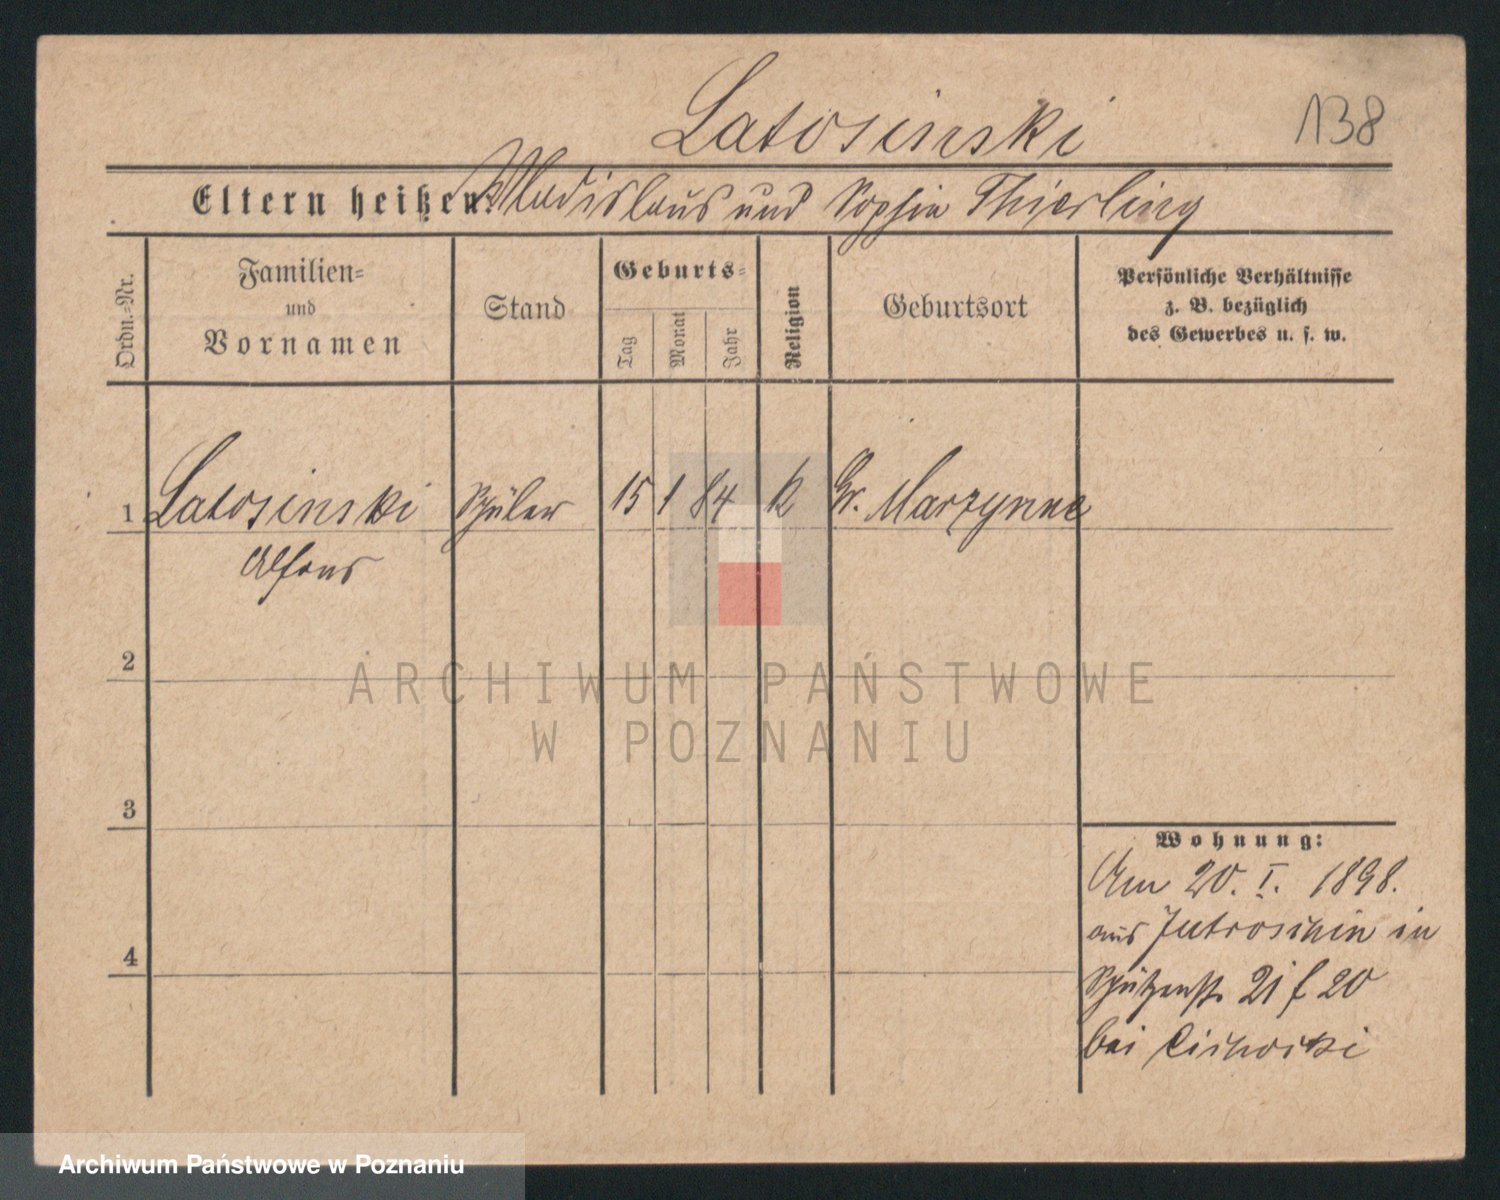 Latosinski
138
Eltern heißen: Wladislaus und Sophie Thierling
Ordn.-Nr.
Familien-
und
Vornamen
Stand
Geburts-
Tag
Monat
Jahr
Religion
Geburtsort
Persönliche Verhältnisse
z. B. bezüglich
des Gewerbes u. s. w.
1 Latosinski Schüler 15 1 84 k Gr.
Alfons
2
3
4
Wohnung:
Am 20. I. 1898.
aus Jutroschin in
Schützenstr. 21 f 20
bei Cichocki
ARCHIWUM PAŃSTWOWE
W POZNANIU
Archiwum Państwowe w Poznaniu